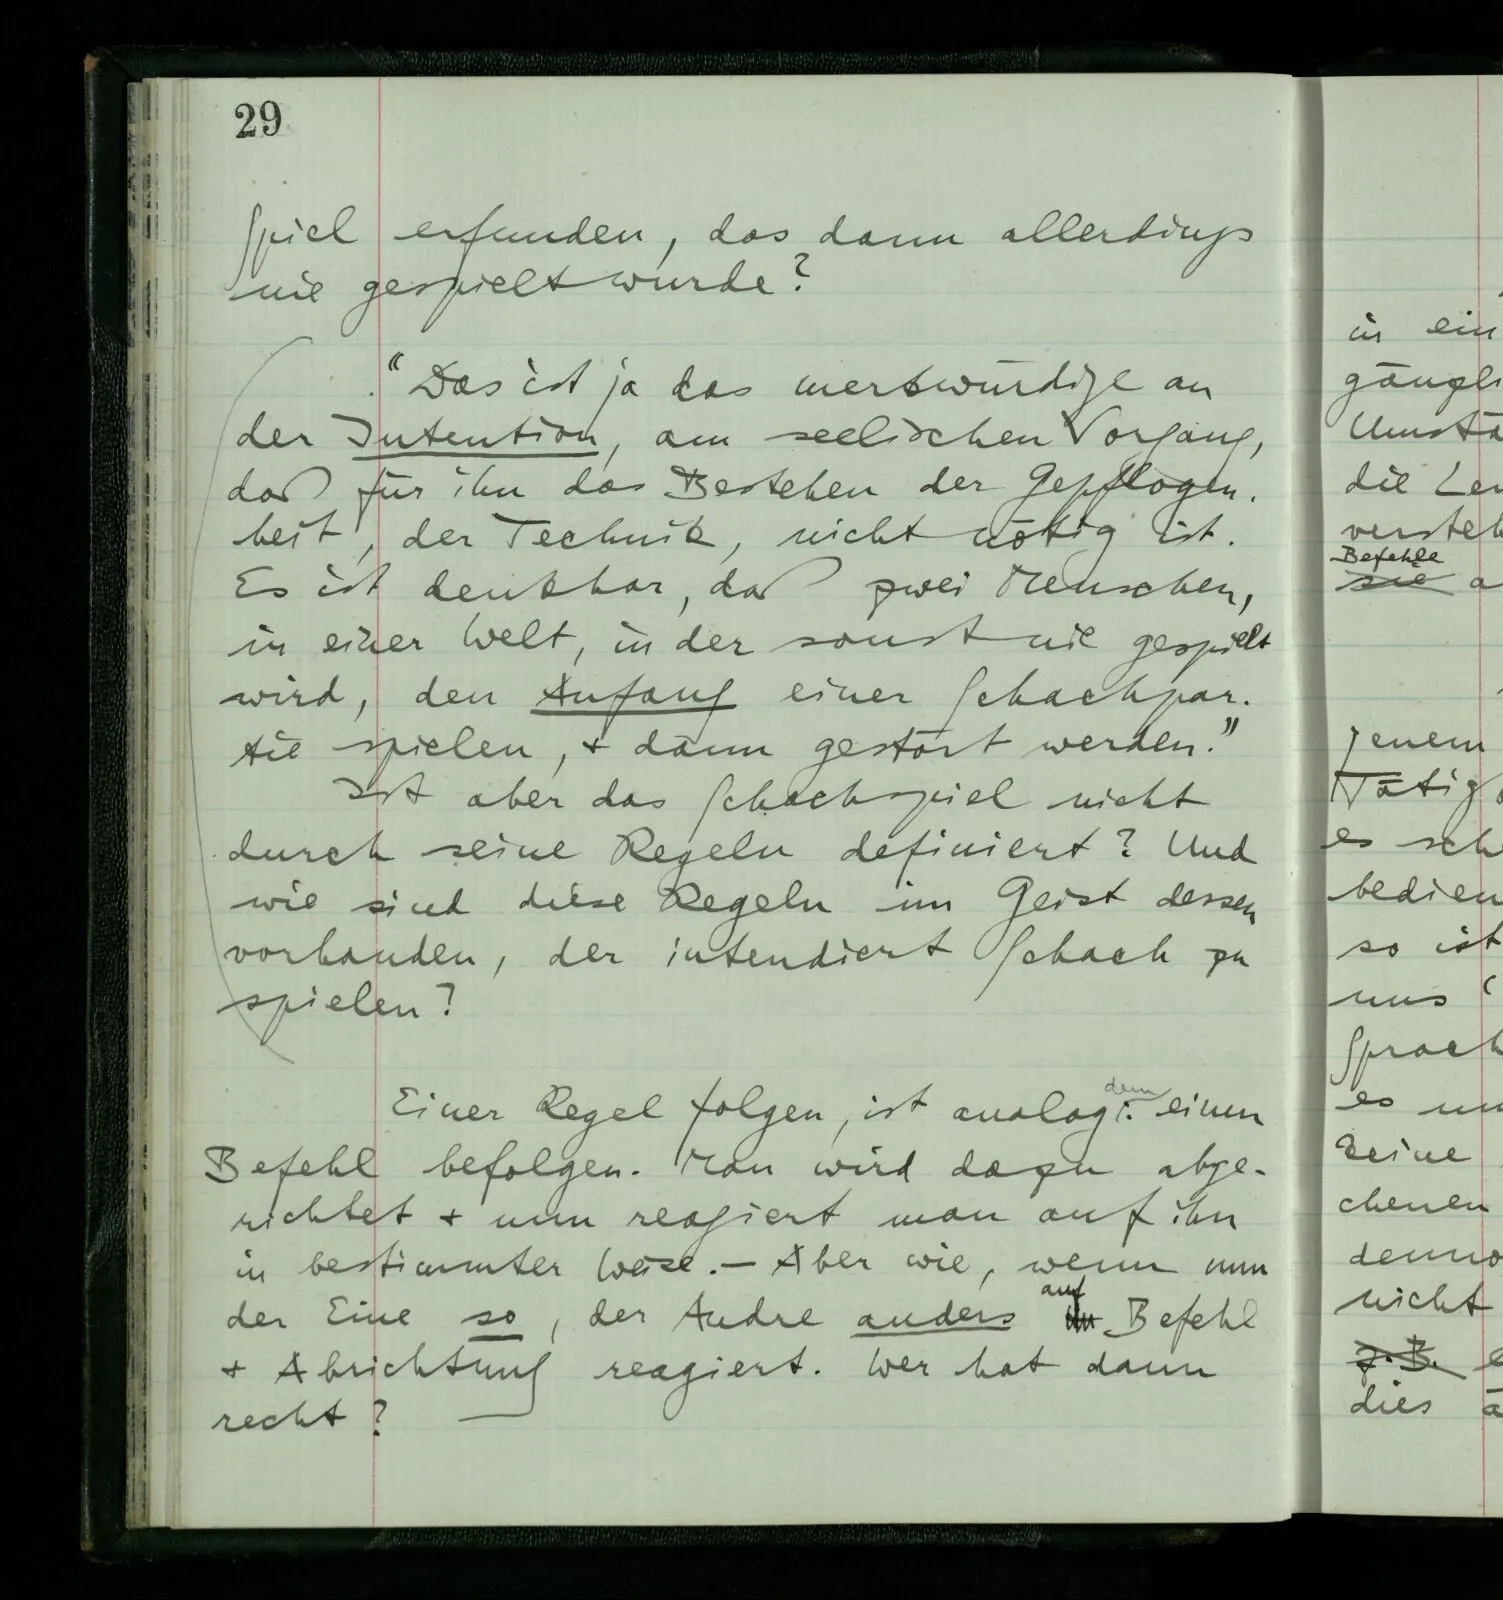 29
Spiel erfunden, das dann allerdings
nie gespielt wurde?
"Das ist ja das merkwürdige an
der Intention, am seelischen Vorgang,
daß für ihn das Bestehen der Gepflogen-
heit, der Technik, nicht nötig ist.
Es ist denkbar, daß zwei Menschen,
in einer Welt, in der sonst nie gespielt
wird, den Anfang einer Schachpar-
tie spielen, + dann gestört werden."
Ist aber das Schachspiel nicht
durch seine Regeln definiert? Und
wie sind diese Regeln im Geist dessen
vorhanden, der intendiert Schach zu
spielen?
dem
Einer Regel folgen, ist analog: einen
Befehl befolgen. Man wird dazu abge-
richtet + nun reagiert man auf ihn
in bestimmter Weise. – Aber wie, wenn nun
auf
der Eine so, der Andre anders Befehl
+ Abrichtung reagiert. Wer hat dann
recht?
in ein
gängli
Umstä
die Leu
versteh
Befehle
sie a
jenem
Tätig
es sch
bedien
so ist
uns
Sprach
es un
keine
chenen
denno
nicht
z.B. e
dies ä